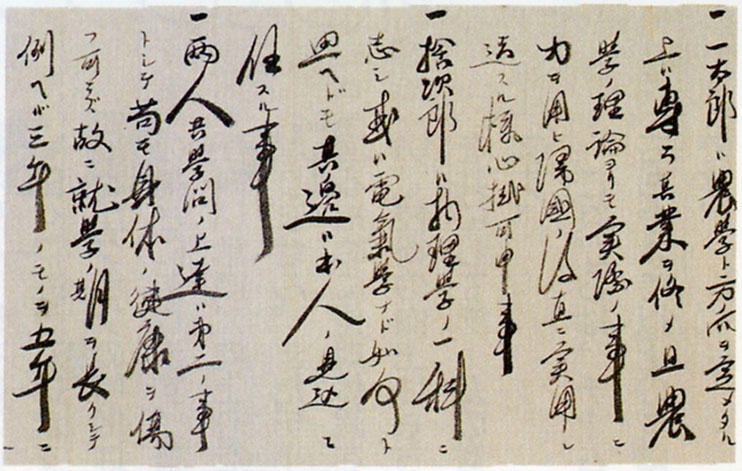 一 一太郎ハ農學ト方向ヲ定メタル
上ハ専ラ其業ヲ修メ且農
學ノ理論ヨリモ実際ノ事ニ
力ヲ用ヒ帰國ノ後直ニ実用ニ
適スル様心掛可申事
一 捨次郎ハ物理學ノ一科ニ
志シ或ハ電氣學ナド如何ト
思ヘドモ其邊ハ本人ノ見込ニ
任スル事
一 両人共學問ノ上達ハ第二ノ事
トシテ苟モ身体ノ健康ヲ傷
フ可ラズ故ニ就學ノ期月ヲ長クシテ
例ヘバ三年ノモノヲ五年ニ